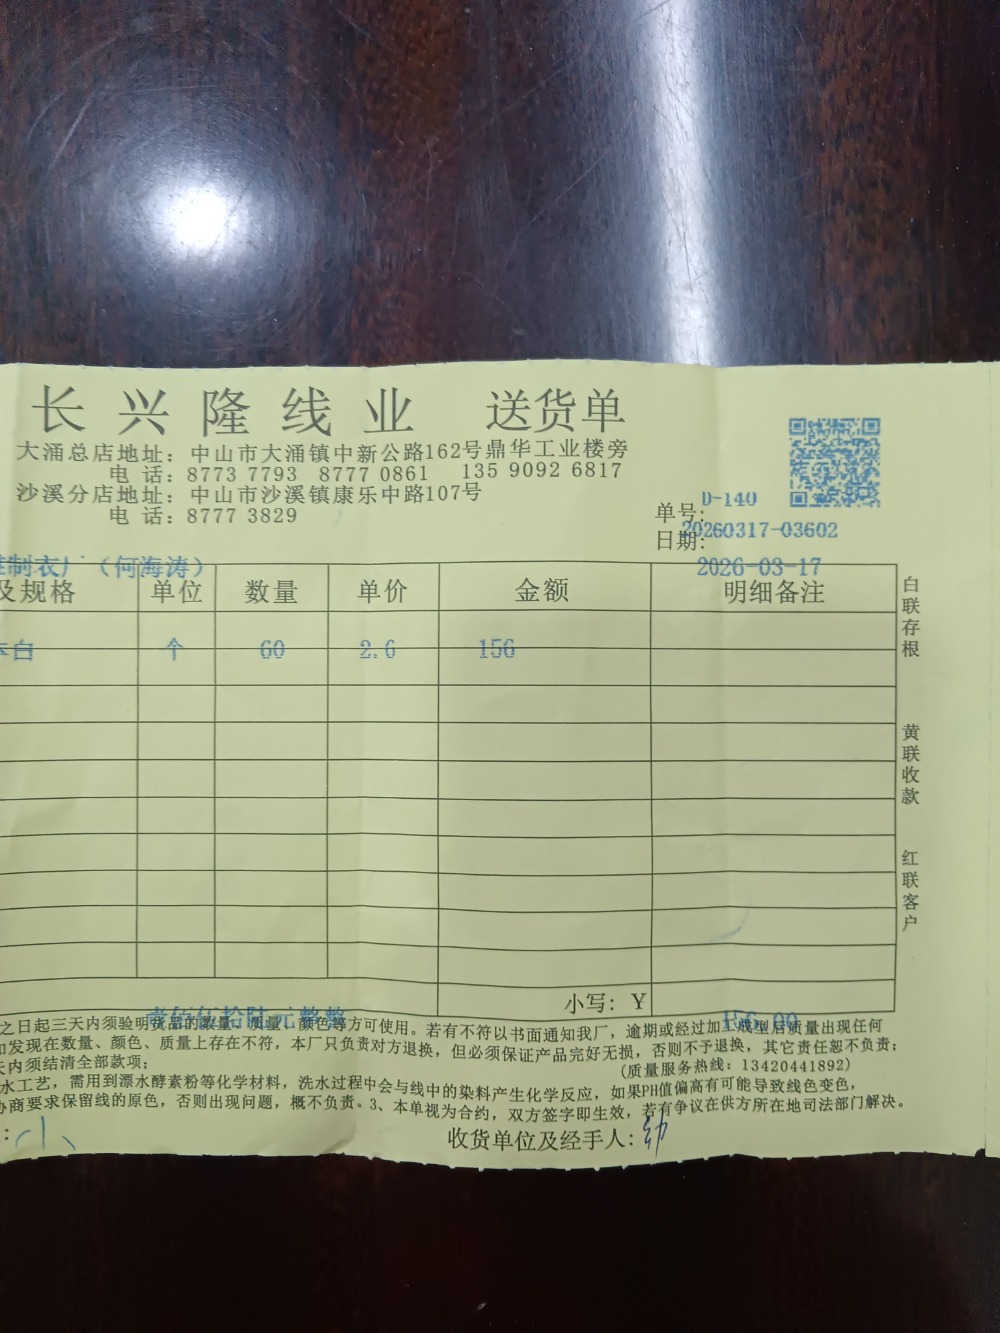 长兴隆线业 送货单
大涌总店地址：中山市大涌镇中新公路162号鼎华工业楼旁
电 话：8773 7793 8777 0861 135 9092 6817
沙溪分店地址：中山市沙溪镇康乐中路107号
电 话：8777 3829
D-140
单号：
20260317-03602
日期：
2026-03-17
制衣厂（何海涛）
及规格 单位 数量 单价 金额 明细备注
本白 个 60 2.6 156
白联存根
黄联收款
红联客户
小写：Y
壹佰伍拾陆元整
156.00
之日起三天内须验明货品的数量、质量、颜色等方可使用。若有不符以书面通知我厂，逾期或经过加工成型后质量出现任何
如发现在数量、颜色、质量上存在不符，本厂只负责对方退换，但必须保证产品完好无损，否则不予退换，其它责任恕不负责；
天内须结清全部款项；
(质量服务热线：13420441892)
水工艺，需用到漂水酵素粉等化学材料，洗水过程中会与线中的染料产生化学反应，如果PH值偏高有可能导致线色变色，
协商要求保留线的原色，否则出现问题，概不负责。3、本单视为合约，双方签字即生效，若有争议在供方所在地司法部门解决。
收货单位及经手人：